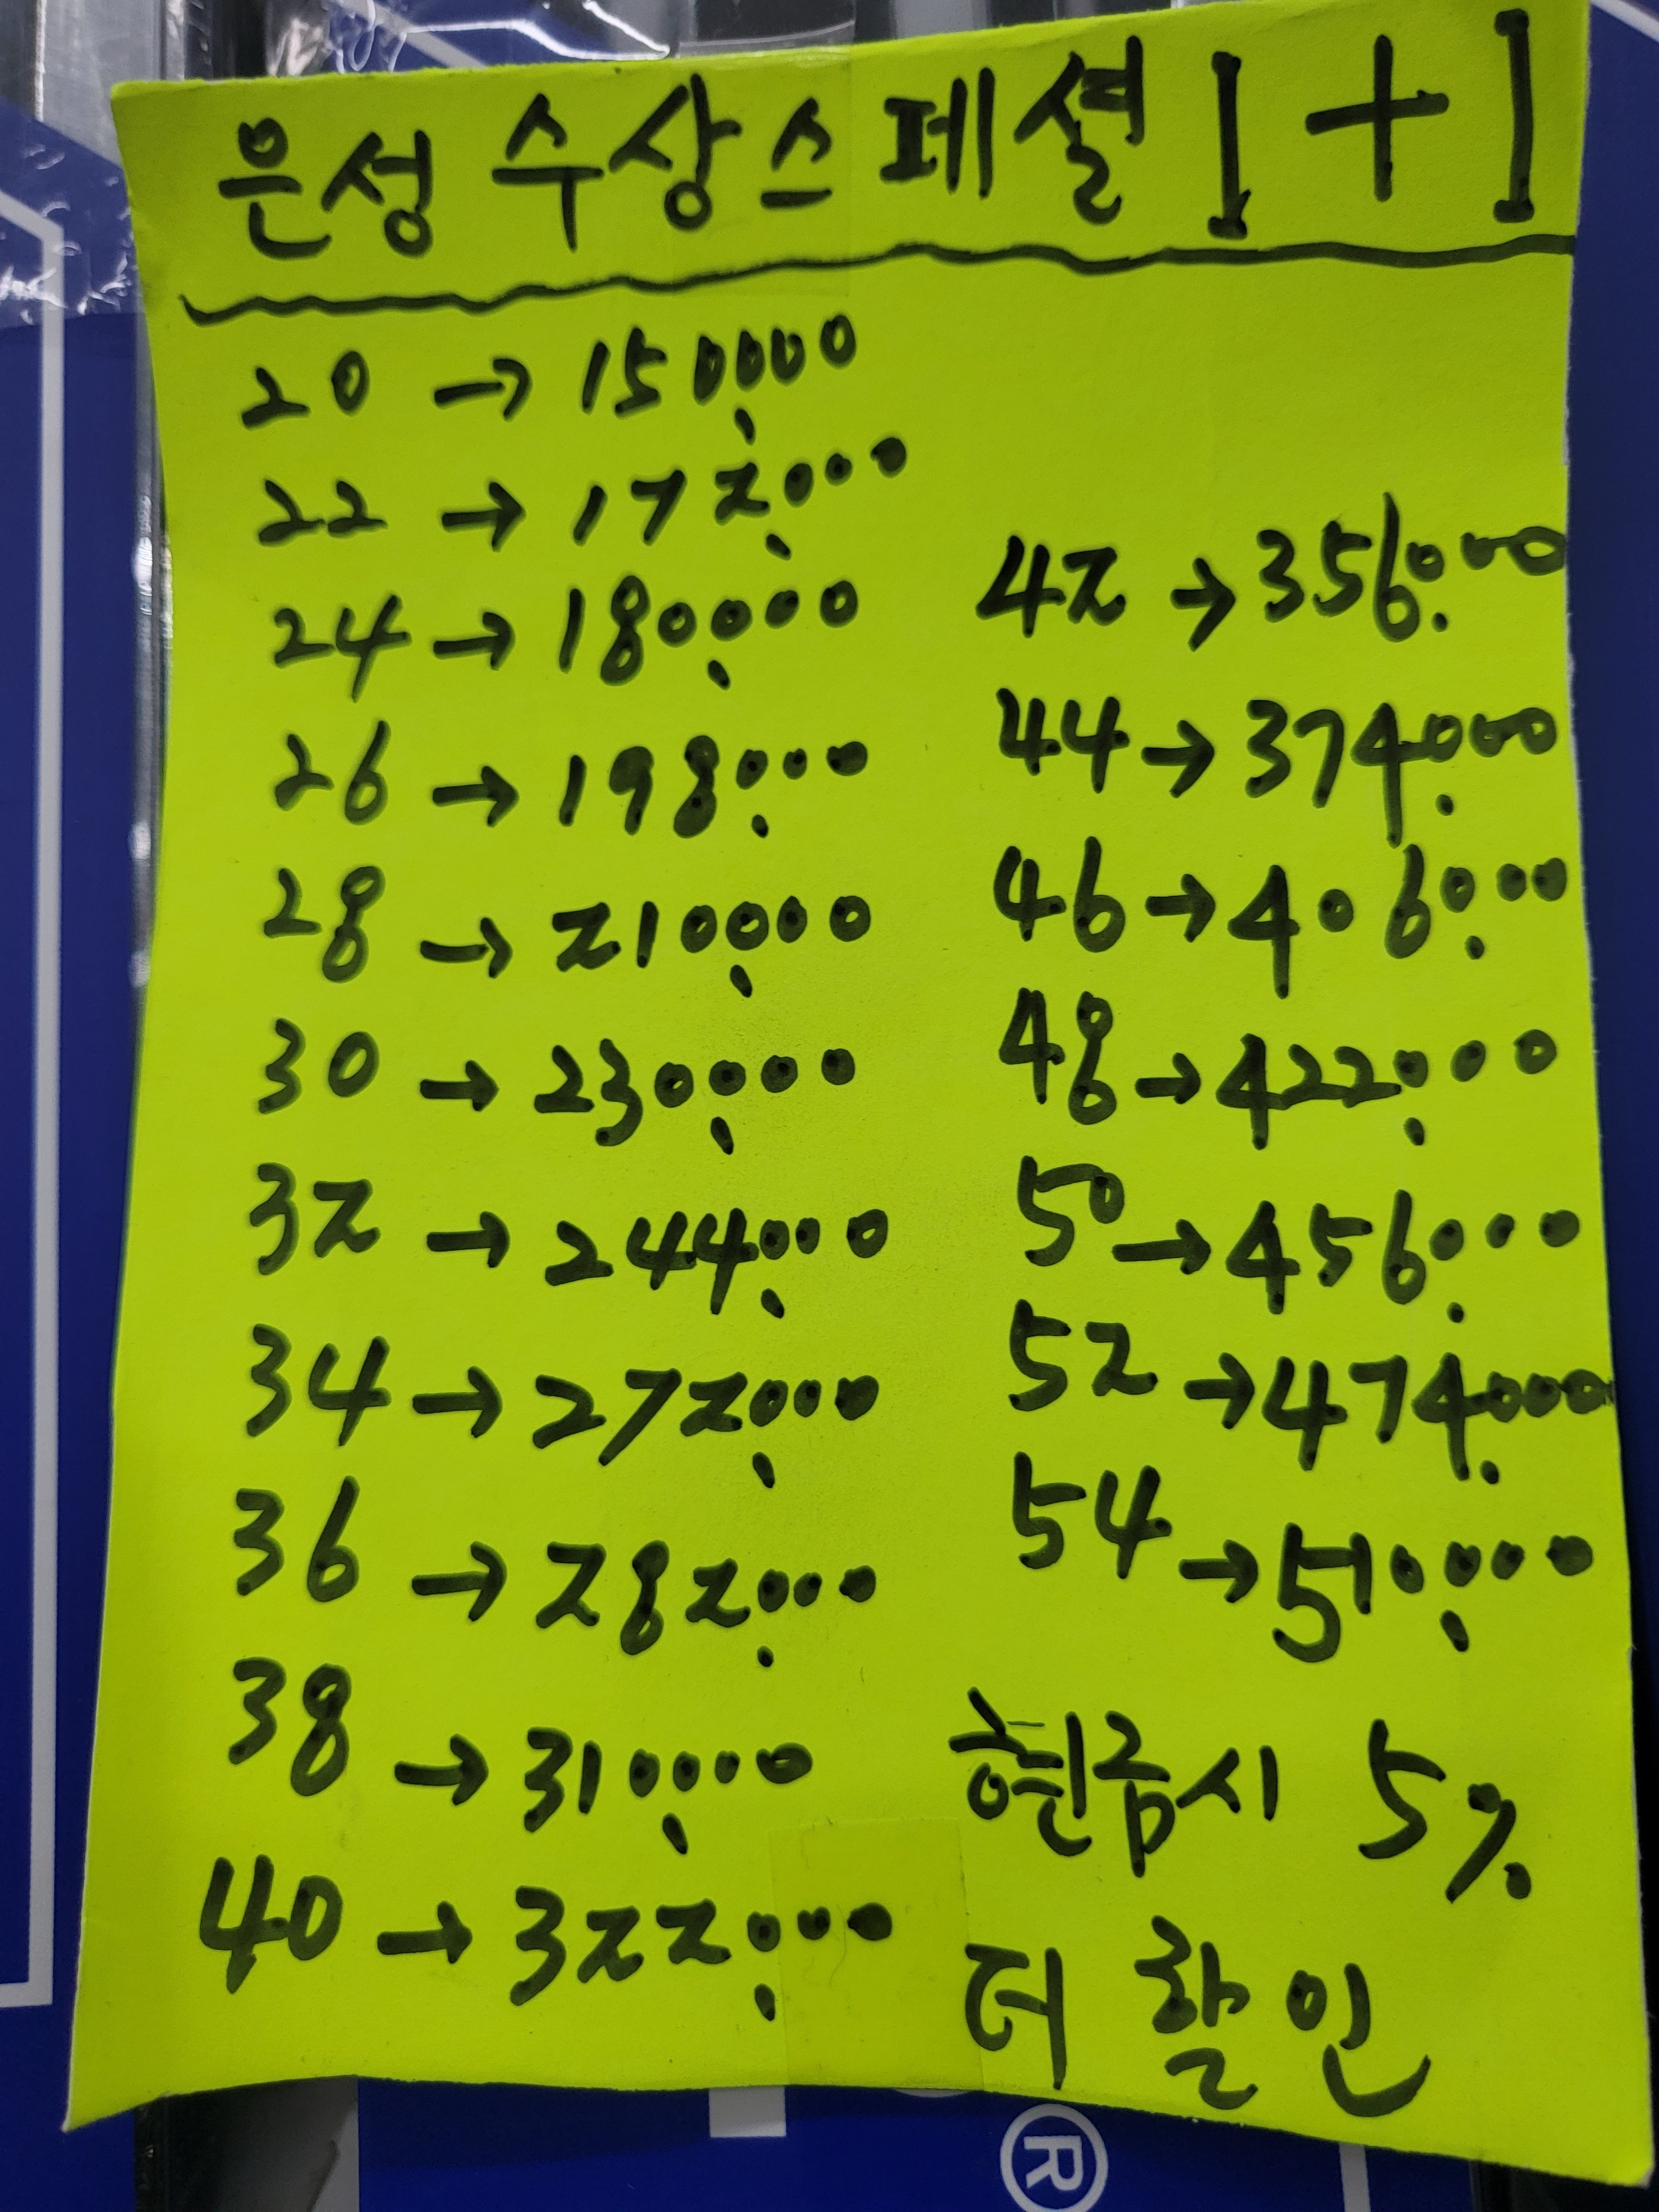 은성 수상스페셜 1+1
20 → 150,000
22 → 172,000
24 → 180,000
26 → 198,000
28 → 210,000
30 → 230,000
32 → 244,000
34 → 272,000
36 → 282,000
38 → 310,000
40 → 322,000
42 → 356,000
44 → 374,000
46 → 406,000
48 → 422,000
50 → 456,000
52 → 474,000
54 → 510,000
현금시 5%
더 할인
®